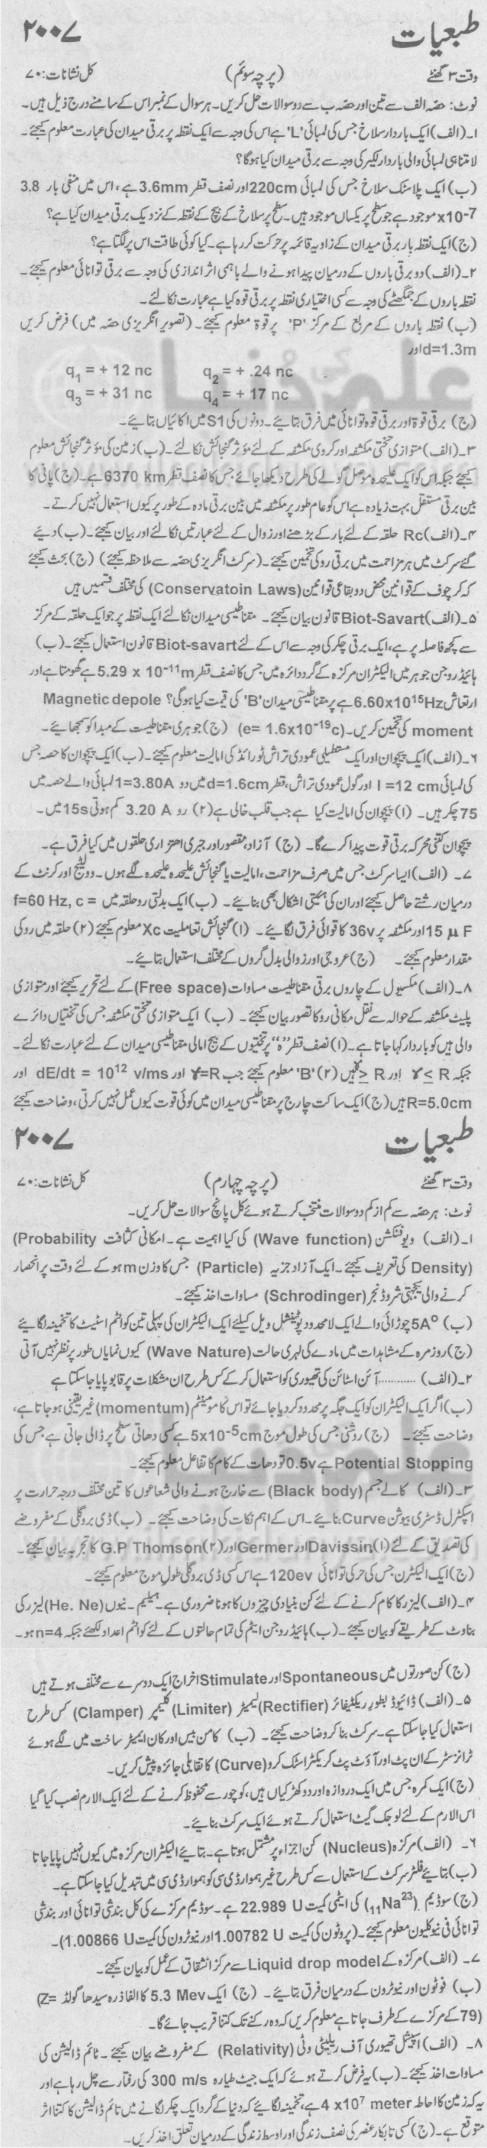 طبعیات ۲۰۰۷
وقت ۳ گھنٹے (پرچہ سوئم) کل نشانات: ۷۰
نوٹ: حصّہ الف سے تین اور حصّہ ب سے دو سوالات حل کریں۔ ہر سوال کے نمبر اس کے سامنے درج ذیل ہیں۔
۱۔ (الف) ایک باردار سلاخ جس کی لمبائی 'L' ہے اس کی وجہ سے ایک نقطہ پر برقی میدان کی عبارت معلوم کیجئے۔
لامتناہی لمبائی والی باردار لکیر کی وجہ سے برقی میدان کیا ہوگا؟
(ب) ایک پلاسٹک سلاخ جس کی لمبائی 220cm اور نصف قطر 3.6mm ہے، اس میں منفی بار 3.8
x10-7 موجود ہے جو سطح پر یکساں موجود ہیں۔ سطح پر سلاخ کے بیچ کے نقطہ کے نزدیک برقی میدان کیا ہے؟
(ج) ایک نقطہ بار برقی میدان کے زاویہ قائمہ پر حرکت کر رہا ہے۔ کیا کوئی طاقت اس پر لگتا ہے؟
۲۔ (الف) دو برقی باروں کے درمیان پیدا ہونے والے باہمی اثر اندازی کی وجہ سے برقی توانائی معلوم کیجئے۔
نقطہ باروں کے جمگھٹے کی وجہ سے کسی اختیاری نقطہ پر برقی قوہ کیا ہے عبارت نکالئے۔
(ب) نقطہ باروں کے مربع کے مرکز 'P' پر قوۃ معلوم کیجئے۔ (تصویر انگریزی حصّہ میں) فرض کریں
d=1.3m اور
q1 = + 12 nc q2 = + .24 nc
q3 = + 31 nc q4 = + 17 nc
(ج) برقی قوۃ اور برقی قوہ توانائی میں فرق بتایئے۔ دونوں کی S1 میں اکائیاں بتایئے۔
۳۔ (الف) متوازی تختی مکثفہ اور کروی مکثفہ کے لئے مؤثر گنجائش نکالئے۔ (ب) زمین کی مؤثر گنجائش معلوم
کیجئے جبکہ اس کو ایک علیحدہ موصل گولے کی طرح دیکھا جائے جس کا نصف قطر 6370 km ہے۔ (ج) پانی کا
بین برقی مستقل بہت زیادہ ہے اس کو عام طور پر مکثفہ میں بین برقی مادہ کے طور پر کیوں استعمال نہیں کرتے۔
۴۔ (الف) Rc حلقہ کے لئے بار کے بڑھنے اور زوال کے لئے عبارتیں نکالئے اور بیان کیجئے۔ (ب) دیئے
گئے سرکٹ میں ہر مزاحمت میں برقی رو کی تخمین کیجئے۔ (سرکٹ انگریزی حصّہ سے ملاحظہ کیجئے) (ج) بحث کیجئے
کہ کرچوف کے قوانین محض دو بقاعی قوانین (Conservatoin Laws) کی مختلف قسمیں ہیں
۵۔ (الف) Biot-Savart قانون بیان کیجئے۔ مقناطیسی میدان نکالئے ایک نقطہ پر جو ایک حلقہ کے مرکز
سے کچھ فاصلہ پر ہے، ایک برقی چکر کی وجہ سے اس کے لئے Biot-savart قانون استعمال کیجئے۔ (ب)
ہائیڈروجن جوہر میں الیکٹران مرکزہ کے گرد دائرہ میں جس کا نصف قطر 5.29 x 10-11m ہے گھومتا ہے اور
ارتعاش 6.60x1015Hz ہے پر مقناطیسی میدان 'B' کی قیمت کیا ہوگی؟ Magnetic depole
moment کی تخمین کریں۔ (e= 1.6x10-19c) (ج) جوہری مقناطیست کے مبدا کو سمجھایئے۔
۶۔ (الف) ایک پیچوان اور ایک مستطیلی عمودی تراش ٹورائڈ کی امالیت معلوم کیجئے۔ (ب) ایک پیچوان کا حصہ جس
کی لمبائی l =12 cm اور گول عمودی تراش، قطر d=1.6cm میں دو 1=3.80A لمبائی والے حصہ میں
75 چکر ہیں۔ (۱) پیچوان کی امالیت کیا ہے جب قلب خالی ہے (۲) رو 3.20 A کم ہوتی 15s میں۔
پیچوان کتنی محرکہ برقی قوت پیدا کرے گا۔ (ج) آزاد، مقصور اور جبری اھتزازی حلقوں میں کیا فرق ہے۔
۷۔ (الف) ایسا سرکٹ جس میں صرف مزاحمت، امالیت یا گنجائش علیحدہ علیحدہ لگے ہوں۔ وولٹیج اور کرنٹ کے
درمیان رشتے حاصل کیجئے اور ان کی ہیئتی اشکال بھی بنایئے۔ (ب) ایک بدلتی رو حلقہ میں f=60 Hz, c =
15 μ F اور مکثفہ پر 36v کا قوائی فرق لگایئے۔ (۱) گنجائش تعاملیت Xc معلوم کیجئے (۲) حلقہ میں رو کی
مقدار معلوم کیجئے۔ (ج) عروجی اور زوالی بدل گروں کے مختلف استعمال بتایئے۔
۸۔ (الف) مکسیول کے چاروں برقی مقناطیست مساوات (Free space) کے لئے تحریر کیجئے اور متوازی
پلیٹ مکثفہ کے حوالہ سے نقل مکانی رو کا تصور بیان کیجئے۔ (ب) ایک متوازی تختی مکثفہ جس کی تختیاں دائرے
والی ہیں کو باردار کہا جاتا ہے۔ (۱) نصف قطر "r" پر تختیوں کے بیچ امالی مقناطیسی میدان کے لئے عبارت نکالئے۔
جبکہ r < R اور r > R (۲) 'B' معلوم کیجئے جب r=R اور dE/dt = 1012 v/ms اور
R=5.0cm ہیں (ج) ایک ساکت چارج پر مقناطیسی میدان میں کوئی قوت کیوں عمل نہیں کرتی، وضاحت کیجئے
طبعیات ۲۰۰۷
وقت ۳ گھنٹے (پرچہ چہارم) کل نشانات: ۷۰
نوٹ: ہر حصّہ سے کم از کم دو سوالات منتخب کرتے ہوئے کل پانچ سوالات حل کریں۔
۱۔ (الف) ویو فنکشن (Wave function) کی کیا اہمیت ہے۔ امکانی کثافت Probability)
(Density کی تعریف کیجئے۔ ایک آزاد جزیہ (Particle) جس کا وزن m ہو کے لئے وقت پر انحصار
کرنے والی یکجہتی شروڈنجر (Schrodinger) مساوات اخذ کیجئے۔
(ب) 5A° چوڑائی والے ایک لامحدود پوٹینشل ویل کیلئے ایک الیکٹران کی پہلی تین کوانٹم اسٹیٹ کا تخمینہ لگایئے
(ج) روزمرہ کے مشاہدات میں مادے کی لہری حالت (Wave Nature) کیوں نمایاں طور پر نظر نہیں آتی
۲۔ (الف) ........... آئن اسٹائن کی تھیوری کو استعمال کر کے کس طرح ان مشکلات پر قابو پایا جا سکتا ہے
(ب) اگر ایک الیکٹران کو ایک جگہ پر محدود کر دیا جائے تو اس کا مومینٹم (momentum) غیر یقینی ہو جاتا ہے،
وضاحت کیجئے۔ (ج) روشنی جس کی طول موج 5x10-5cm ہے کسی دھاتی سطح پر ڈالی جاتی ہے جس کی
Potential Stopping 0.5v ہے تو دھات کے کام کا تفاعل معلوم کیجئے۔
۳۔ (الف) کالے جسم (Black body) سے خارج ہونے والی شعاعوں کا تین مختلف درجہ حرارت پر
اسپیکٹرل ڈسٹری بیوشن Curve بنایئے۔ اس کے اہم نکات کی وضاحت کیجئے۔ (ب) ڈی بروگلی کے مفروضے
کی تصدیق کے لئے (۱) Davissin اور Germer اور (۲) G.P Thomson کا تجربہ بیان کیجئے۔
(ج) ایک الیکٹرن جس کی حرکی توانائی 120ev ہے اس کسی ڈی بروگلی طول موج معلوم کیجئے۔
۴۔ (الف) لیزر کا کام کرنے کے لئے کن بنیادی چیزوں کا ہونا ضروری ہے۔ ہیلیم۔ نیون (He. Ne) لیزر کی
بناوٹ کے طریقے کو بیان کیجئے۔ (ب) ہائیڈروجن ایٹم کی تمام حالتوں کے لئے کوانٹم اعداد لکھئے جبکہ n=4 ہو۔
(ج) کن صورتوں میں Spontaneous اور Stimulate اخراج ایک دوسرے سے مختلف ہوتے ہیں
۵۔ (الف) ڈائیوڈ بطور ریکٹیفائر (Rectifier) لیمیٹر (Limiter) کلیمپر (Clamper) کس طرح
استعمال کیا جا سکتا ہے۔ سرکٹ بنا کر وضاحت کیجئے۔ (ب) کامن بیس اور کامن ایمیٹر ساخت میں لگے ہوئے
ٹرانزسٹر کے ان پٹ اور آؤٹ پٹ کریکٹر اسٹک کرو (Curve) کا تقابلی جائزہ پیش کریں۔
(ج) ایک کمرہ جس میں ایک دروازہ اور دو کھڑکیاں ہیں، کو چور سے محفوظ کرنے کے لئے ایک الارم نصب کیا گیا
اس الارم کے لئے لوجک گیٹ استعمال کرتے ہوئے ایک سرکٹ بنایئے۔
۶۔ (الف) مرکزہ (Nucleus) کن اجزاء پر مشتمل ہوتا ہے۔ بتایئے الیکٹران مرکزہ میں کیوں نہیں پایا جاتا
(ب) بتایئے فلٹر سرکٹ کے استعمال سے کس طرح غیر ہموار ڈی سی کو ہموار ڈی سی میں تبدیل کیا جا سکتا ہے۔
(ج) سوڈیم (11Na23) کی ایٹمی کمیت 22.989 U ہے۔ سوڈیم مرکزے کی کل بندشی توانائی اور بندشی
توانائی فی نیوکلیون معلوم کیجئے۔ (پروٹون کی کمیت 1.00782 U اور نیوٹرون کی کمیت 1.00866 U)۔
۷۔ (الف) مرکزہ کے Liquid drop model سے مرکز انشقاق کے عمل کو بیان کیجئے۔
(ب) فوٹون اور نیوٹرون کے درمیان فرق بتایئے۔ (ج) ایک 5.3 Mev کا الفا ذرہ سیدھا گولڈ Z=)
(79 کے مرکزے کے طرف جاتا ہے معلوم کریں کہ وہ رکنے تک کتنا قریب جائے گا۔
۸۔ (الف) اسپیشل تھیوری آف ریلیٹی وٹی (Relativity) کے مفروضے بیان کیجئے۔ ٹائم ڈائلیشن کی
مساوات اخذ کیجئے۔ (ب) یہ فرض کرتے ہوئے کہ ایک جیٹ طیارہ 300 m/s کی رفتار سے چل رہا ہے اور
یہ کہ زمین کا احاطہ 4 x107 meter ہے، تخمینہ لگایئے کہ دنیا کے گرد ایک چکر لگانے میں ٹائم ڈالیشن کا کتنا اثر
متوقع ہے۔ (ج) کسی تابکار عنصر کی نصف زندگی اور اوسط زندگی کے درمیان تعلق اخذ کریں۔